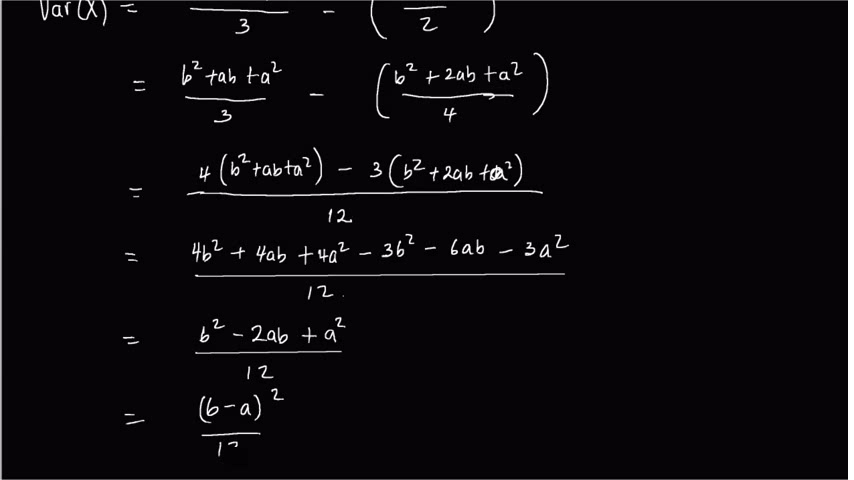 Var(X) = ─── / 3 - ( ─── / 2 )
= (b² + ab + a²) / 3 - ( (b² + 2ab + a²) / 4 )
= (4(b² + ab + a²) - 3(b² + 2ab + a²)) / 12
= (4b² + 4ab + 4a² - 3b² - 6ab - 3a²) / 12.
= (b² - 2ab + a²) / 12
= (b - a)² / 12